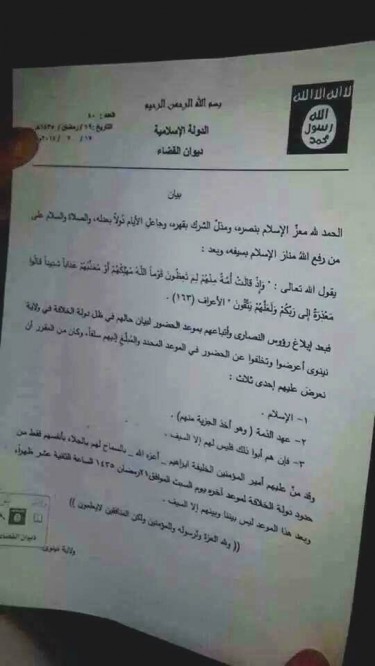 بسم الله الرحمن الرحيم
لا إله إلا الله
الله
رسول
محمد
العدد : ٤٠
الدولة الإسلامية
ديوان القضاء
التاريخ: ١٩/رمضان/١٤٣٥هـ
١٧ / ٧ / ٢٠١٤
بيان
الحمد لله معزّ الإسلام بنصره، ومذلّ الشرك بقهره، وجاعل الأيام دُوَلاً بعدله، والصلاة والسلام على
من رفع اللهُ منار الإسلام بسيفه، وبعد :
يقول الله تعالى : " وَإِذْ قَالَتْ أُمَّةٌ مِنْهُمْ لِمَ تَعِظُونَ قَوْمًا اللَّهُ مُهْلِكُهُمْ أَوْ مُعَذِّبُهُمْ عَذَابًا شَدِيدًا قَالُوا
مَعْذِرَةً إِلَى رَبِّكُمْ وَلَعَلَّهُمْ يَتَّقُونَ " . الأعراف (١٦٣)
فبعد إبلاغ رؤوس النصارى وأتباعهم بموعد الحضور لبيان حالهم في ظل دولة الخلافة في ولاية
نينوى أعرضوا وتخلفوا عن الحضور في الموعد المحدد والمُبلّغ إليهم سلفاً، وكان من المقرر أن
نعرض عليهم إحدى ثلاث :
١- الإسلام .
٢- عهد الذمة ( وهو أخذ الجزية منهم) .
٣- فإن هم أبوا ذلك فليس لهم إلا السيف .
وقد منّ عليهم أمير المؤمنين الخليفة ابراهيم _ أعزه الله _ بالسماح لهم بالجلاء بأنفسهم فقط من
حدود دولة الخلافة لموعد آخره يوم السبت الموافق ٢١ رمضان ١٤٣٥ الساعة الثانية عشر ظهراً،
وبعد هذا الموعد ليس بيننا وبينهم إلا السيف .
(( ولله العزة ولرسوله وللمؤمنين ولكن المنافقين لايعلمون ))
ديوان القضاء
ولاية نينوى